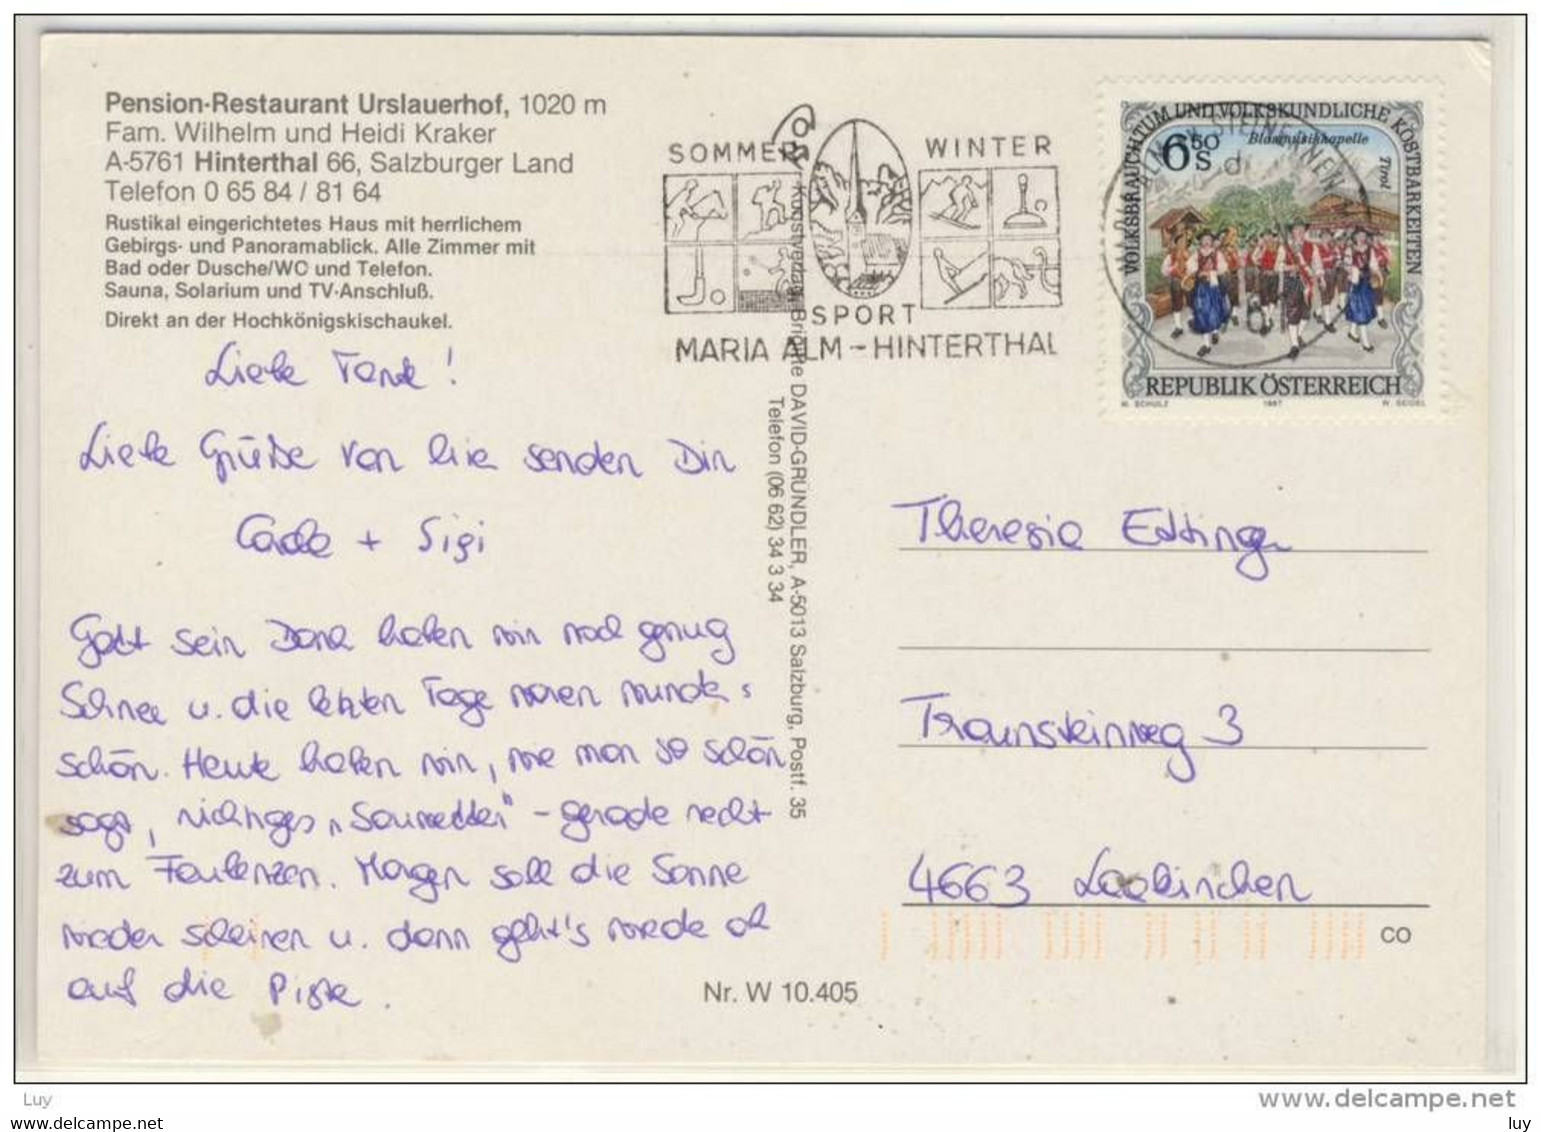 Pension-Restaurant Urslauerhof, 1020 m
Fam. Wilhelm und Heidi Kraker
A-5761 Hinterthal 66, Salzburger Land
Telefon 0 65 84 / 81 64
Rustikal eingerichtetes Haus mit herrlichem
Gebirgs- und Panoramablick. Alle Zimmer mit
Bad oder Dusche/WC und Telefon.
Sauna, Solarium und TV-Anschluß.
Direkt an der Hochkönigskischaukel.
SOMMER WINTER
SPORT
MARIA ALM - HINTERTHAL
VOLKSBRAUCHTUM UND VOLKSKUNDLICHE KOSTBARKEITEN
Blasmusikkapelle
Tirol
6 50 S
REPUBLIK ÖSTERREICH
M. SCHULZ 1997 W. SEIDEL
Kunstverlag Brigitte DAVID-GRÜNDLER, A-5013 Salzburg, Postf. 35
Telefon (06 62) 34 3 34
Liebe Tante!
Liebe Grüße von hier senden Dir
+ Sigi
Gott sein Dank haben wir noch genug
Schnee u. die letzten Tage waren wunder-
schön. Heute haben wir, wie man so schön
sagt, richtiges „Sauwetter" - gerade recht
zum Faulenzen. Morgen soll die Sonne
wieder scheinen u. dann geht's wieder ab
auf die Piste.
Theresia Ettinger
Traunsteinweg 3
4663 Laakirchen
CO
Nr. W 10.405
Luy
www.delcampe.net
www.delcampe.net
luy